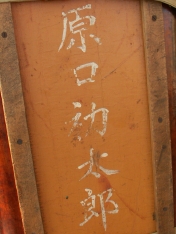 原口初太郎